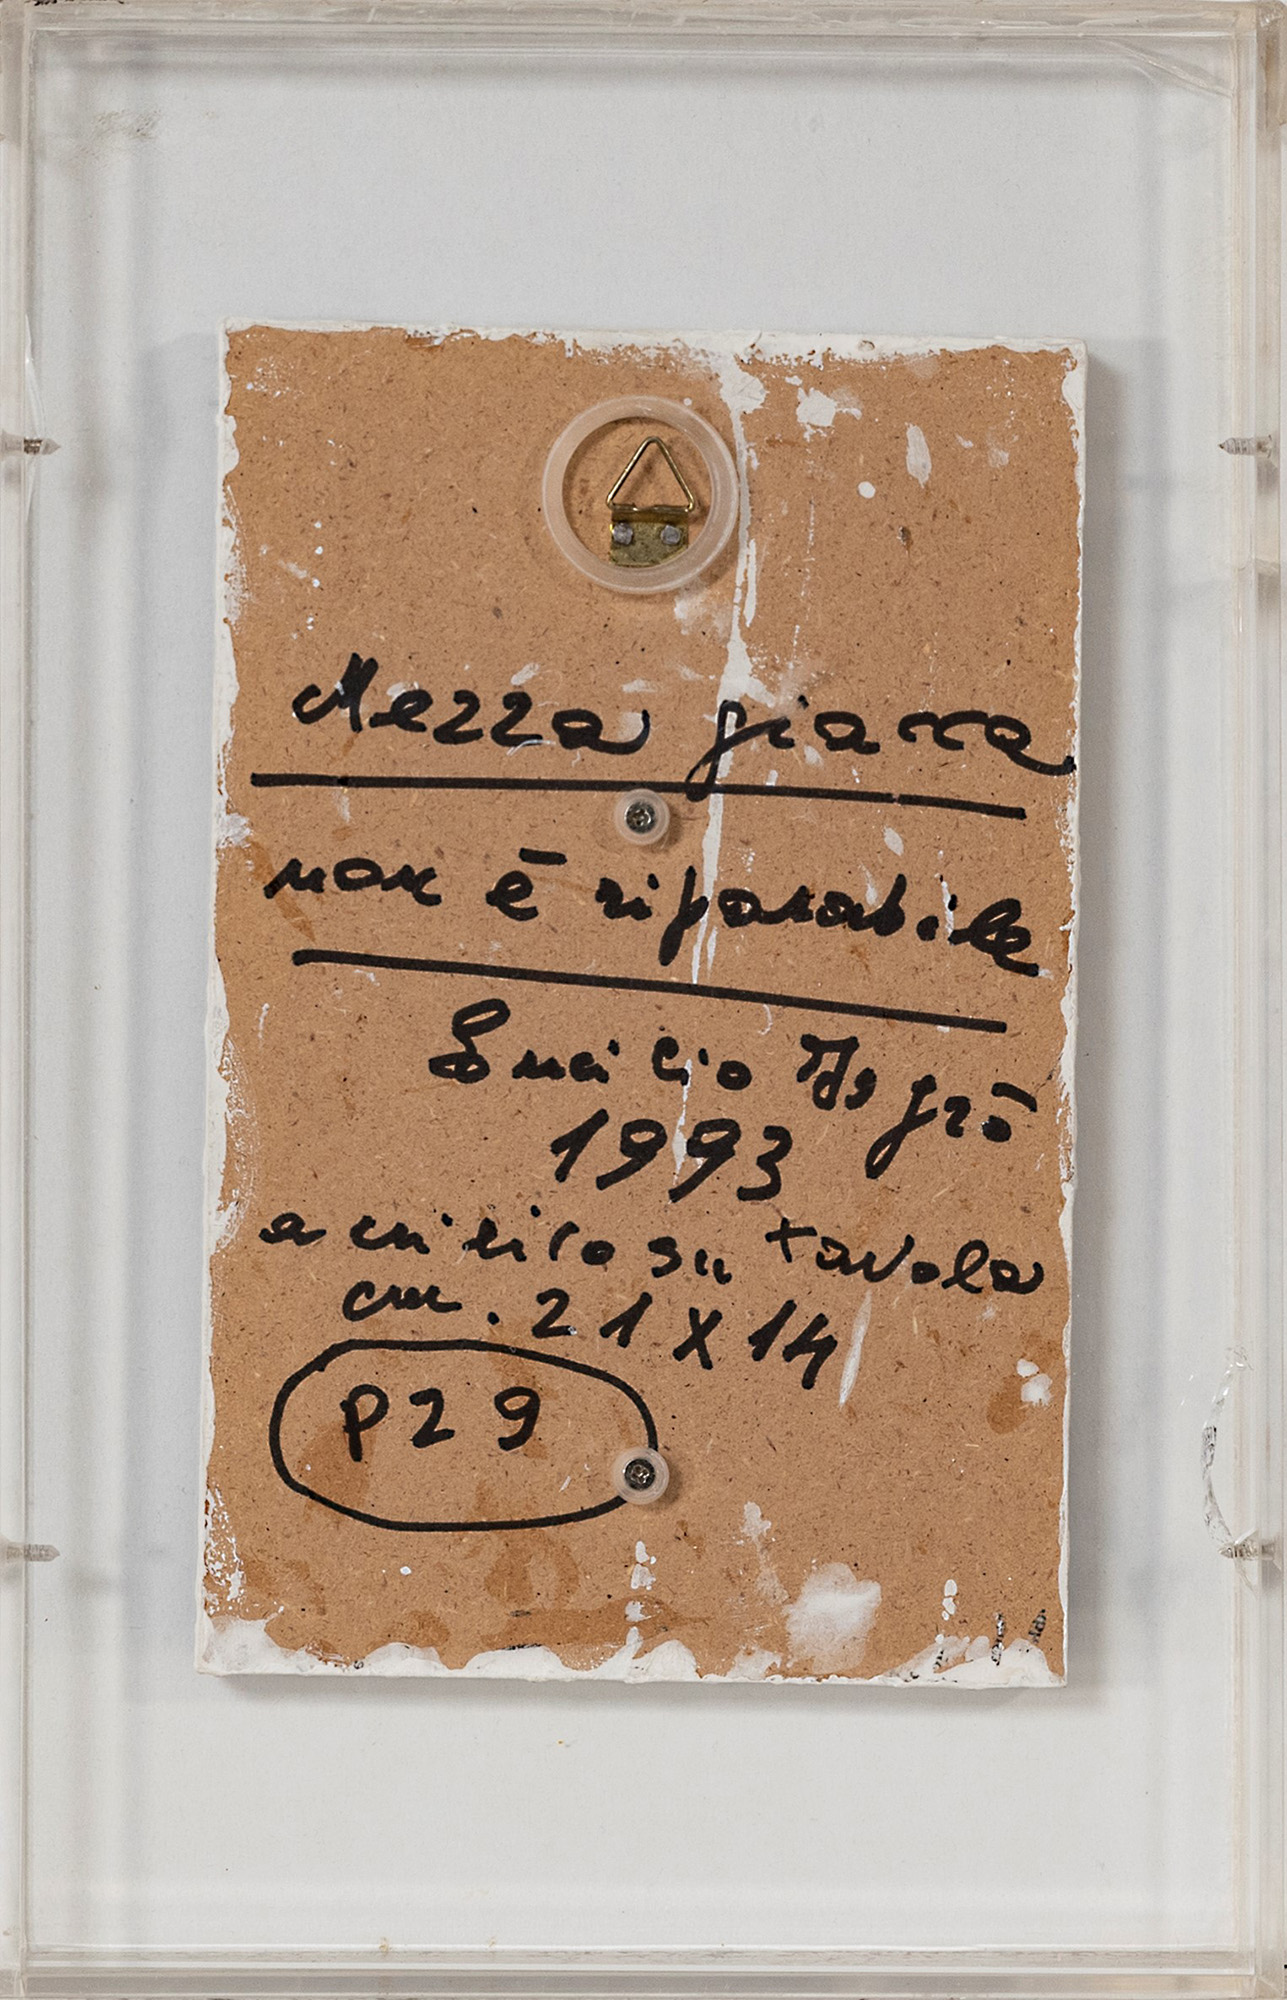 Mezza giara
non è riparabile
Emilio Isgrò
1993
acrilico su tavola
cm. 21 X 14
P29